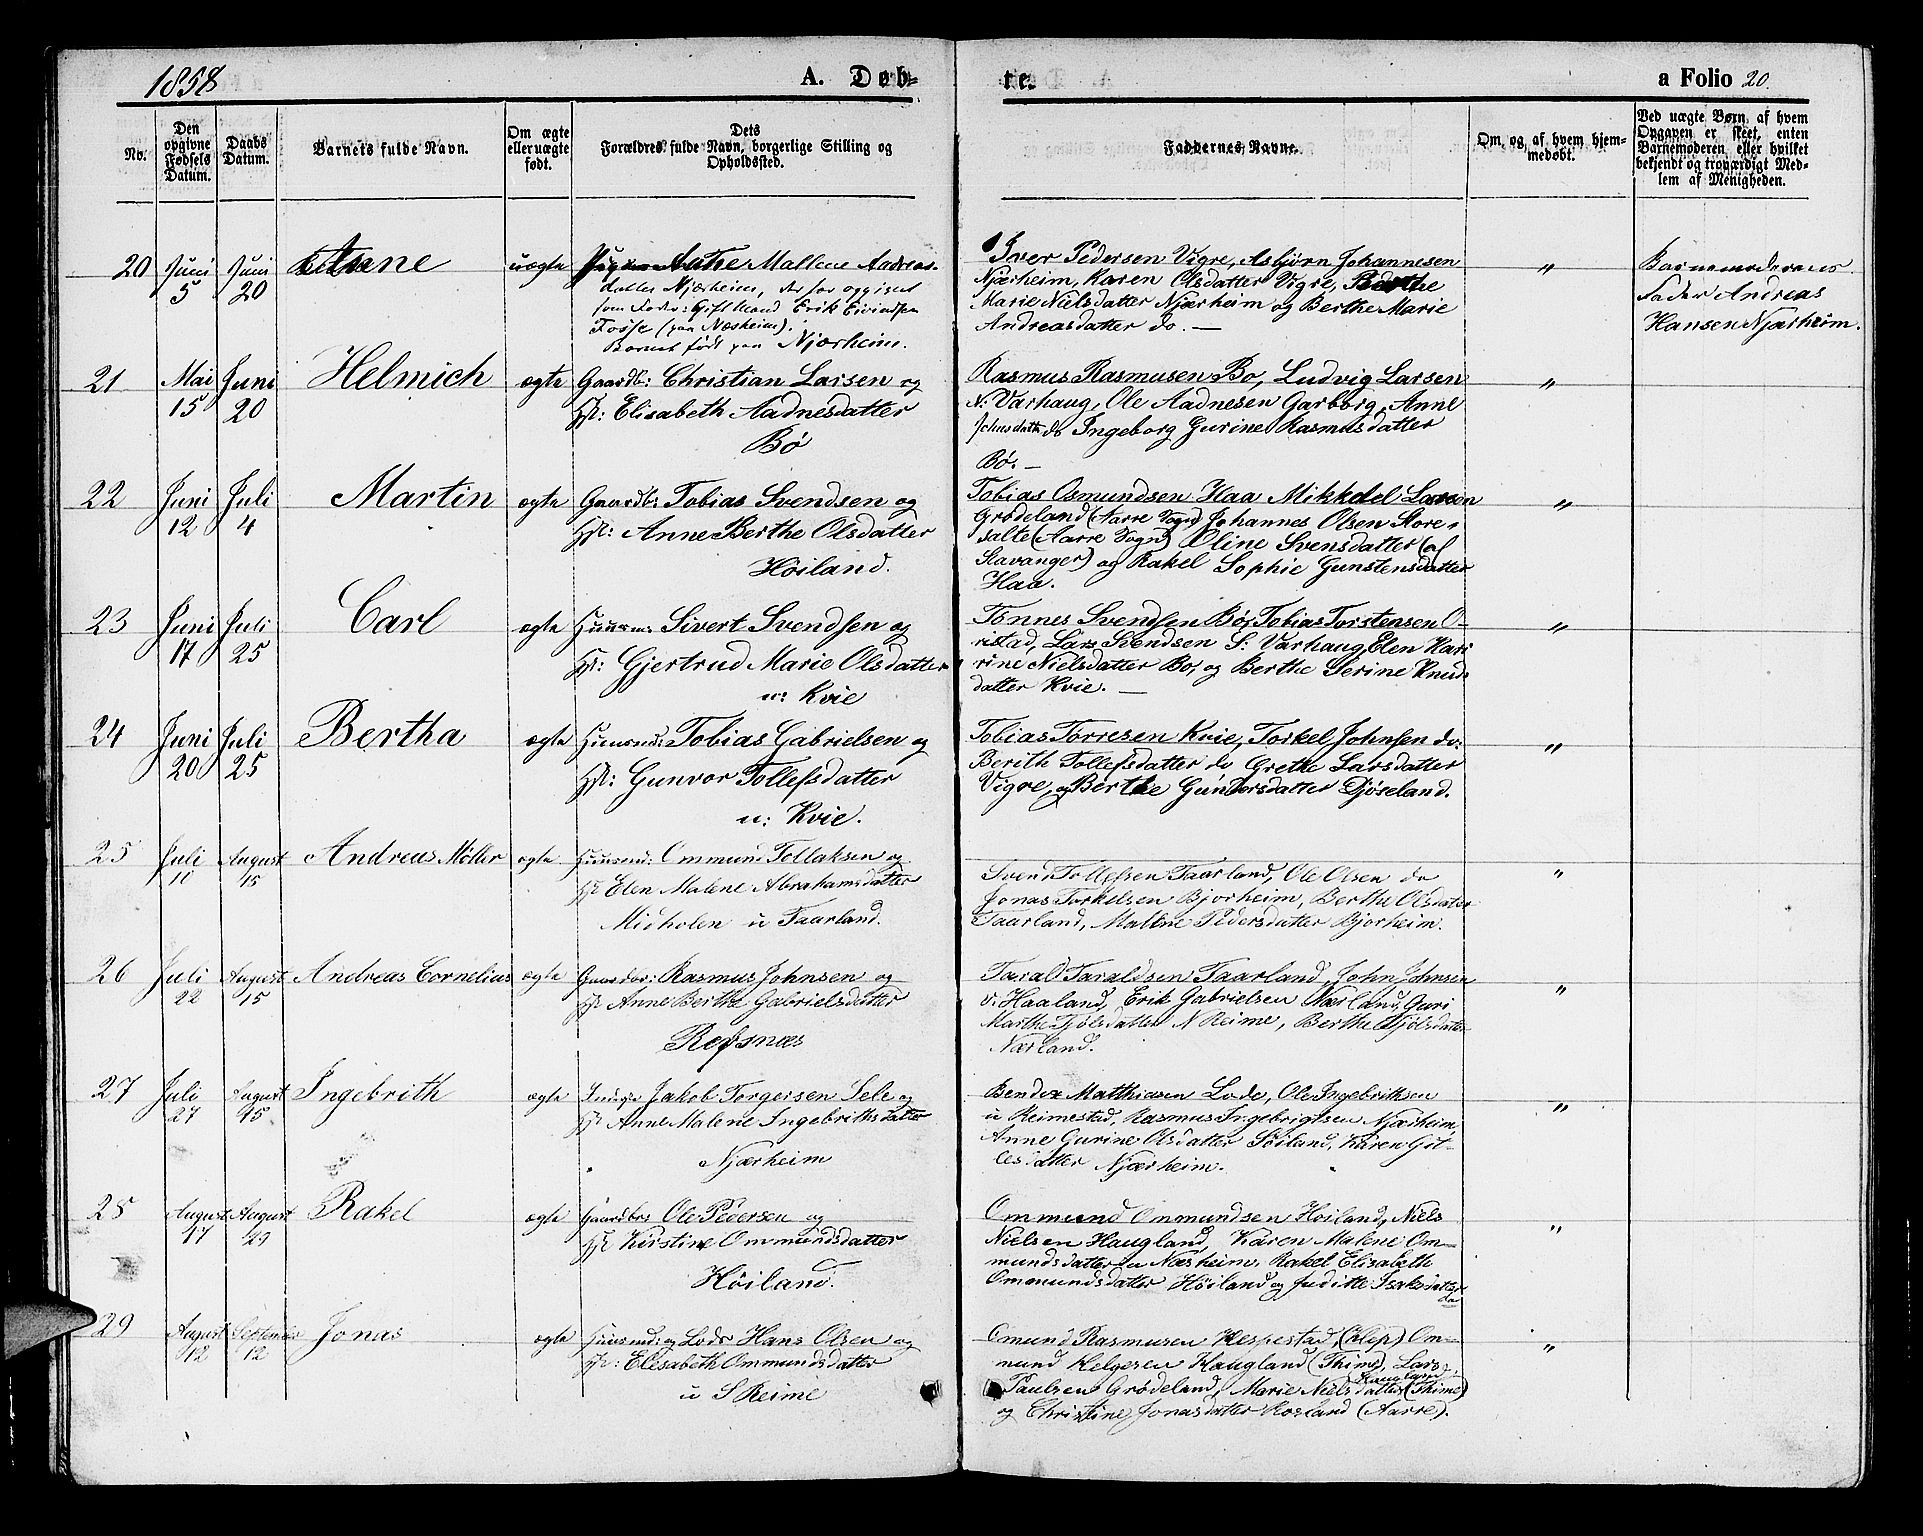 1858
A. Døb-
te.
a Folio 20.
No.
Den opgivne Fødsels Datum.
Daabs Datum.
Barnets fulde Navn.
Om ægte eller uægte født.
Dets Forældres fulde Navn, borgerlige Stilling og Opholdssted.
Faddernes Navne.
Om, og af hvem hjemmedøbt.
Ved uægte Børn, af hvem Opgaven er skeet, enten Barnemoderen eller hvilket bekjendt og troværdigt Medlem af Menigheden.
20 Juni 5 Juni 20 Anne uægte
Anne Mallene Aadreas-
datter Njærheim, der for opgivet
som Fader: Gift Mand Erik Eivindsen
Fosse (paa Næsheim).
Barnet født paa Njærheim.
Iver Pedersen Vigre, Asbjørn Johannesen
Njærheim, Karen Olsdatter Vigre, Berthe
Marie Nielsdatter Njærheim og Berthe Marie
Andreasdatter do. —
"
Barnemoderens
Fader Andreas
Hansen Njærheim.
21 Mai 15 Juni 20 Helmich ægte
Gaardb: Christian Larsen og
Hst: Elisabeth Aadnesdatter
Bø
Rasmus Rasmusen Bø, Ludvig Larsen
N: Varhaug, Ole Aadnesen Garborg, Anne
Johnsdatter do Ingeborg Gurine Rasmusdatter
Bø. —
"
22 Juni 12 Juli 4 Martin ægte
Gaardb: Tobias Svendsen og
Hst: Anne Berthe Olsdatter
Høiland.
Tobias Osmundsen Haa Mikkel Larsen
Grødeland (Aarre Sogn) Johannes Olsen Store-
salte (Aarre Sogn) Oline Svensdatter (af
Stavanger) og Rakel Sophie Gunstensdatter
Haa.
"
23 Juni 17 Juli 25 Carl ægte
Huusm: Sivert Svendsen og
Hst: Gjertrud Marie Olsdatter
u: Kvie
Tønnes Svendsen Bø, Tobias Torstensen O-
ristad, Lars Svendsen S: Varhaug, Elen Kari
rine Nielsdatter Bø, og Berthe Serine Knuds
datter Kvie. —
"
24 Juni 20 Juli 25 Bertha ægte
Huusmd: Tobias Gabrielsen og
Hst: Gunvor Tollefsdatter
u: Kvie.
Tobias Torresen Kvie, Torkel Johnsen do:
Berith Tollefsdatter do Grethe Larsdatter
Vigre, og Berthe Gunvorsdatter Djøseland.
"
25 Juli 10 August 15 Andreas Møller ægte
Huusmd: Ommund Tollaksen og
Hst Elen Malene Abrahamsdatter
Midholen u Taarland.
Svend Tollefsen Taarland, Ole Olsen do
Jonas Torkelsen Bjorheim, Berthe Olsdatter
Taarland, Malene Pedersdatter Bjorheim.
"
26 Juli 22 August 15 Andreas Cornelius ægte
Gaardbr: Rasmus Johnsen og
Hst Anne Berthe Gabrielsdatter
Refsnæs
Tarald Taraldsen Taarland, John Johnsen
v: Haaland, Erik Gabrielsen Nærland, Guri
Marthe Fjølsdatter N Reime, Berthe Fjølsdatter
Nærland.
"
27 Juli 27 August 15 Ingebrith ægte
Jakob Torgersen Sele og
Hst Anne Malene Ingebrithsdatter
Njærheim
Bendix Matthiasen Lode, Ole Ingebrithsen
u Reimestad, Rasmus Ingebrigtsen Njærheim,
Anne Gurine Olsdatter Søiland, Karen Git-
lesdatter Njærheim.
"
28 August 17 August 29 Rakel ægte
Gaardbr: Ole Pedersen og
Hst Kirstine Ommundsdatter
Høiland.
Ommund Ommundsen Høiland, Niels
Nielsen Haugland, Karen Malene Om-
mundsdatter u Næsheim, Rakel Elisabeth
Ommundsdatter Høiland og Juditte Isaksdatter
do
"
29 August 12 September 12 Jonas ægte
Huusmd: og Lods Hans Olsen og
Hst: Elisabeth Ommundsdatter
u S Reime
Omund Rasmusen Hespestad (Klep) Om-
mund Helgesen Haugland (Thime), Lars
Paulsen Grødeland, Marie Nielsdatter Haugland (Thime)
og Christine Jonasdatter Rosland (Aarre).
"